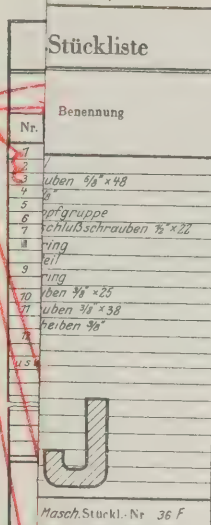 Stückliste
Nr. Benennung
1
2
3 uben 5/8" × 48
4 /8"
5
6 opfgruppe
7 schlußschrauben 1/2" × 22
8 ring
eil
9 ring
10 uben 3/8" × 25
11 uben 3/8" × 38
12 heiben 3/8"
u s w
Masch. Stückl.-Nr 36 F